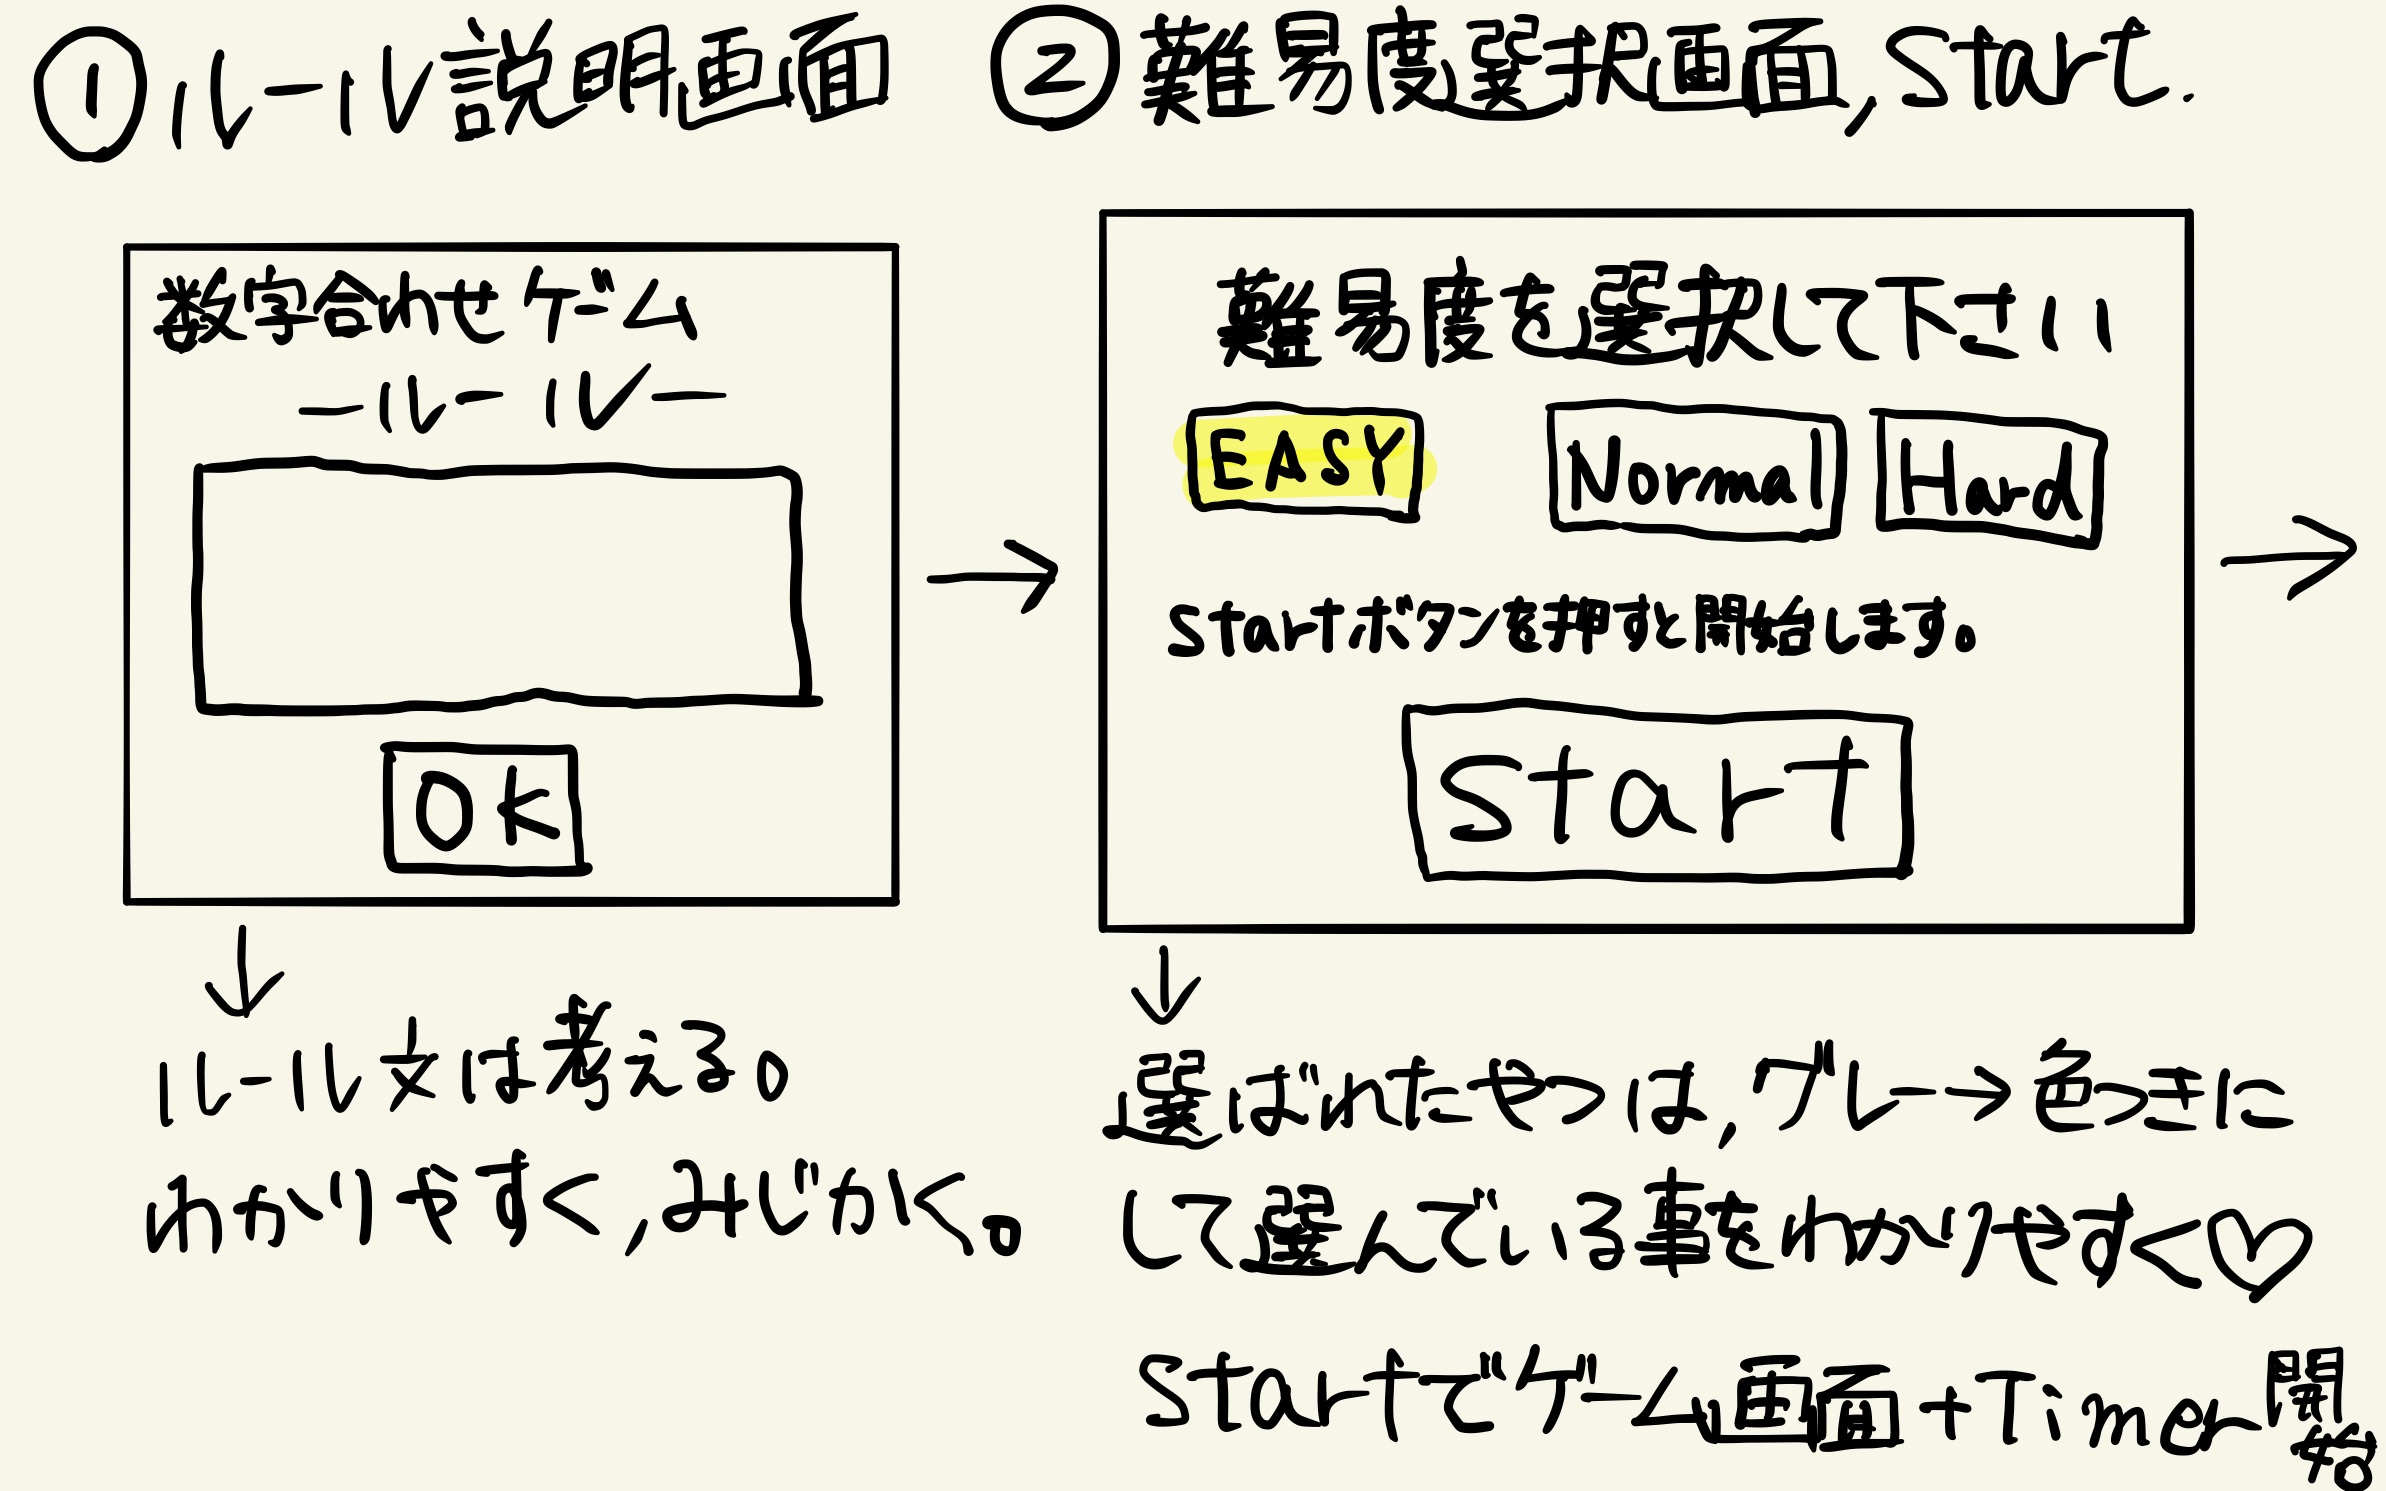 ① ルール説明画面
数字合わせゲーム
ールールー
OK
ルール文は考える。
わかりやすく,みじかく。
② 難易度選択画面,Start.
難易度を選択して下さい
EASY Normal Hard
Startボタンを押すと開始します。
Start
選ばれたやつは,グレー→色つきに
して選んでいる事をわかりやすく♡
Startでゲーム画面+Timer開始